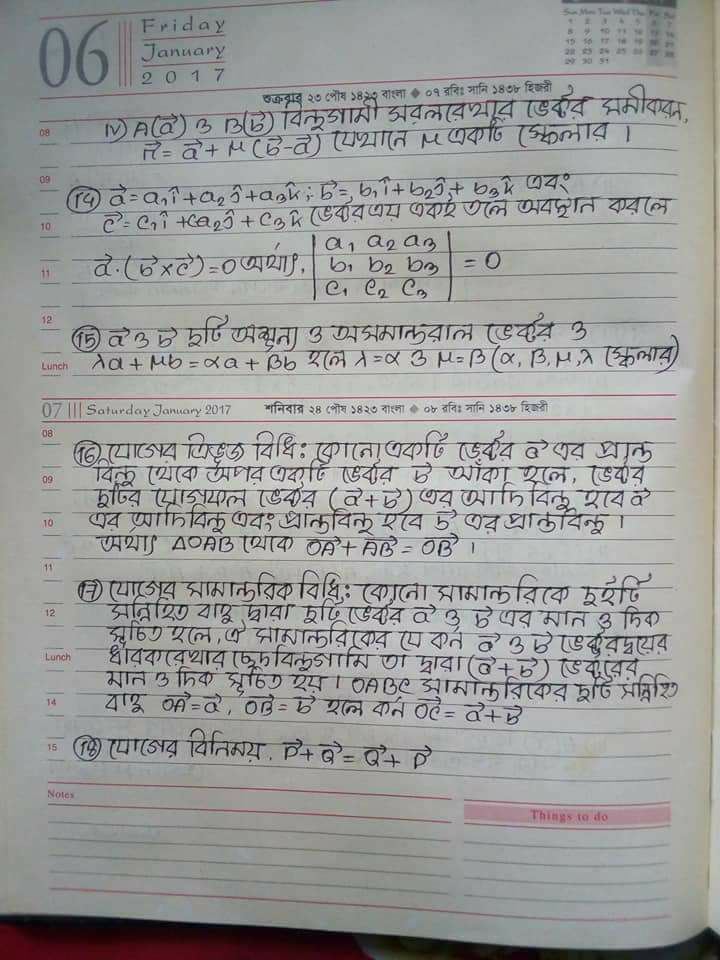 06
Friday
January
2017
Sun Mon Tue Wed Thu Fri Sat
1 2 3 4 5 6 7
8 9 10 11 12 13 14
15 16 17 18 19 20 21
22 23 24 25 26 27 28
29 30 31
শুক্রবার ২৩ পৌষ ১৪২৩ বাংলা ◆ ০৭ রবিঃ সানি ১৪৩৮ হিজরী
08 iv) A(a⃗) ও B(b⃗) বিন্দুগামী সরলরেখার ভেক্টর সমীকরন,
r⃗ = a⃗ + μ(b⃗-a⃗) যেখানে μ একটি স্কেলার ।
09
(14) a⃗ = a₁î + a₂ĵ + a₃k̂ ; b⃗ = b₁î + b₂ĵ + b₃k̂ এবং
10 c⃗ = c₁î + ca₂ĵ + c₃k̂ ভেক্টর ত্রয় একই তলে অবস্থান করলে
a₁ a₂ a₃
11 a⃗·(b⃗×c⃗) = 0 অর্থাৎ, b₁ b₂ b₃ = 0
c₁ c₂ c₃
12
(15) a⃗ ও b⃗ দুটি অশূন্য ও অসমান্তরাল ভেক্টর ও
Lunch λa + μb = αa + βb হলে λ = α ও μ = β (α, β, μ, λ স্কেলার)
07 Saturday January 2017 শনিবার ২৪ পৌষ ১৪২৩ বাংলা ◆ ০৮ রবিঃ সানি ১৪৩৮ হিজরী
08
(16) যোগের ত্রিভূজ বিধি: কোনো একটি ভেক্টর a⃗ এর প্রান্ত
09 বিন্দু থেকে অপর একটি ভেক্টর b⃗ আঁকা হলে, ভেক্টর
দুটির যোগফল ভেক্টর (a⃗+b⃗) এর আদিবিন্দু হবে a⃗
10 এর আদিবিন্দু এবং প্রান্তবিন্দু হবে b⃗ এর প্রান্তবিন্দু ।
অর্থাৎ ΔOAB থেকে OA⃗ + AB⃗ = OB⃗ ।
11
(17) যোগের সামান্তরিক বিধি: কোনো সামান্তরিকে দুইটি
12 সন্নিহিত বাহু দ্বারা দুটি ভেক্টর a⃗ ও b⃗ এর মান ও দিক
সূচিত হলে, ঐ সামান্তরিকের যে কর্ন a⃗ ও b⃗ ভেক্টরদ্বয়ের
Lunch ধারকরেখার ছেদবিন্দুগামি তা দ্বারা (a⃗+b⃗) ভেক্টরের
মান ও দিক সূচিত হয় । OABC সামান্তরিকের দুটি সন্নিহিত
14 বাহু OA⃗ = a⃗, OB⃗ = b⃗ হলে কর্ন OC⃗ = a⃗ + b⃗
15 (18) যোগের বিনিময়, P⃗ + Q⃗ = Q⃗ + P⃗
Notes
Things to do